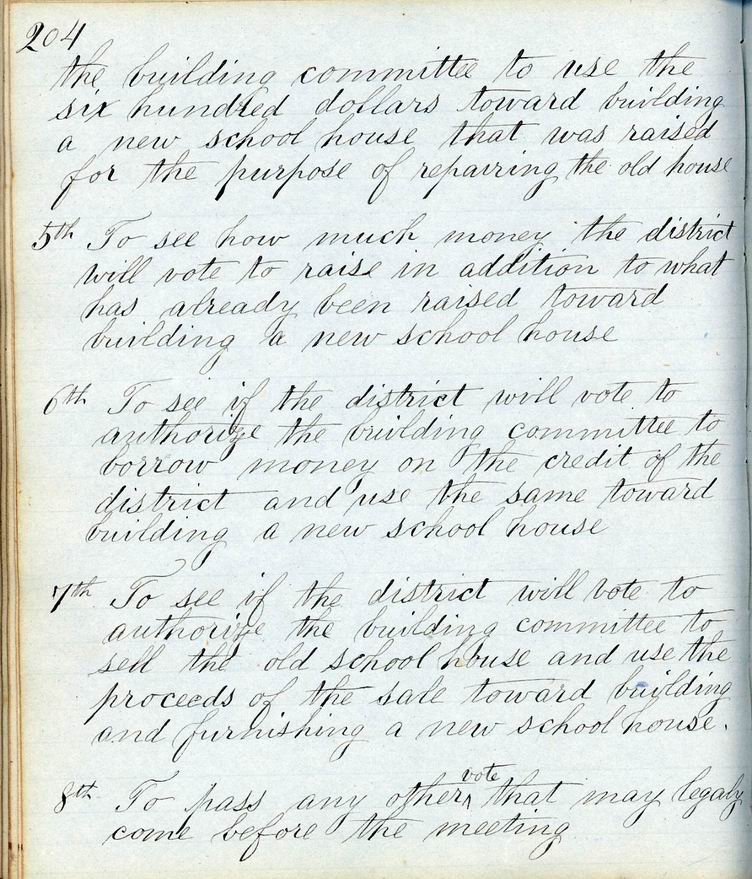 204
the building committee to use the
six hundred dollars toward building
a new school house that was raised
for the purpose of repairing the old house
5th To see how much money the district
will vote to raise in addition to what
has already been raised toward
building a new school house
6th To see if the district will vote to
authorize the building committee to
borrow money on the credit of the
district and use the same toward
building a new school house
7th To see if the district will vote to
authorize the building committee to
sell the old school house and use the
proceeds of the sale toward building
and furnishing a new school house.
vote
8th To pass any other ^ that may legaly
come before the meeting